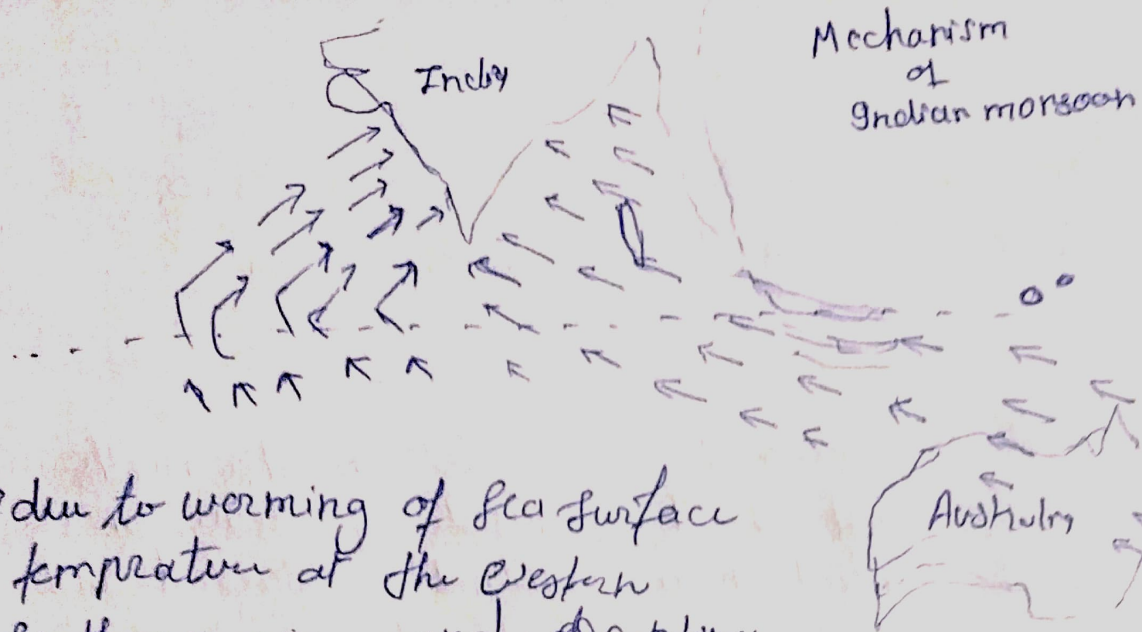 Mechanism
of
Indian monsoon
India
Australia
due to worming of Sea surface
temprature at the western